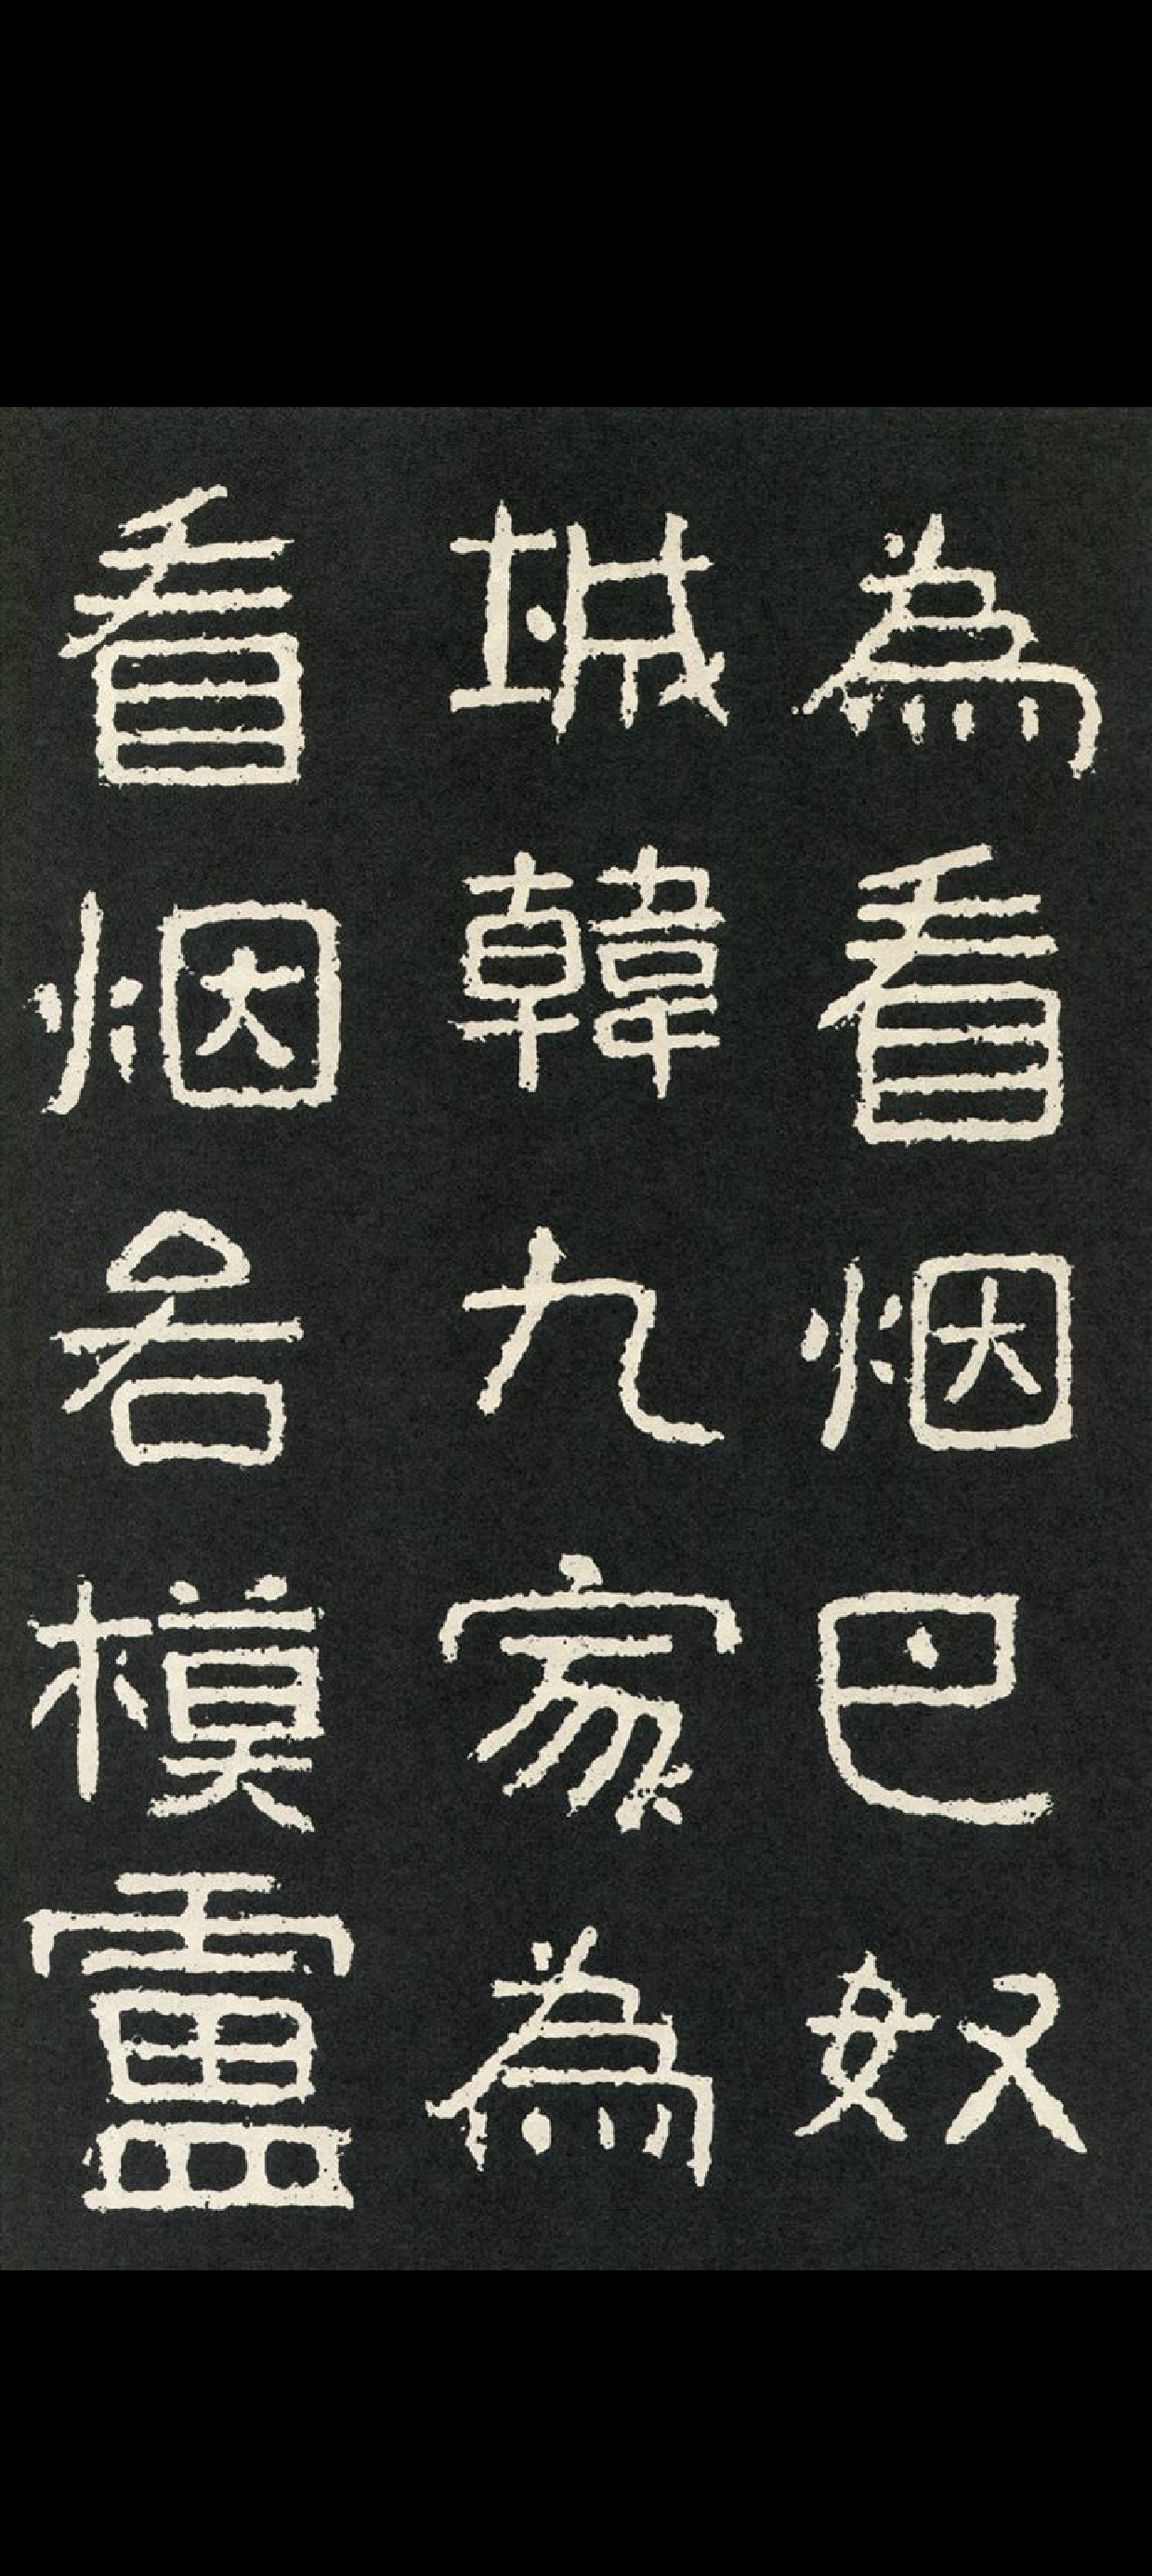 為看烟巴奴
城韓九家為
看烟各模盧